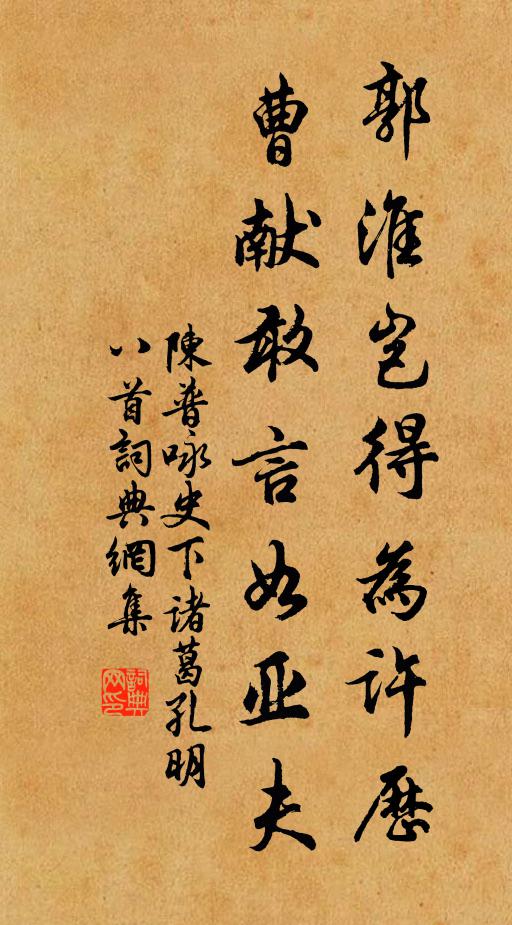 郭淮岂得為许歷
曹献敢言如亚夫
陳普咏史下诸葛孔明
八首詞典網集
詞典网印